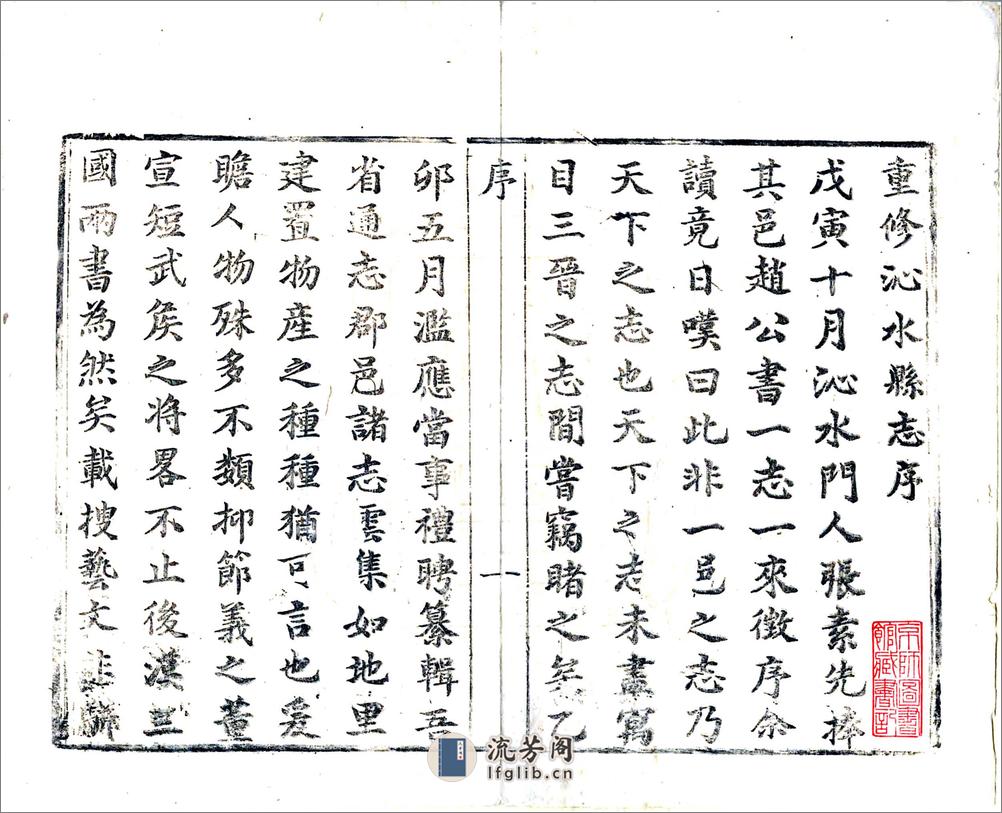 重修沁水縣志序
戊寅十月沁水門人張素先捧
其邑趙公書一志一來徵序余
讀竟日嘆曰此非一邑之志乃
天下之志也天下之志未盡寓
目三晉之志間嘗竊睹之矣乙
序
一
卯五月濫應當事禮聘纂輯吾
省通志郡邑諸志雲集如地里
建置物産之種種猶可言也爰
瞻人物殊多不類抑節義之董
宣短武矦之將畧不止後漢三
國兩書為然矣載搜藝文
京師圖書
館藏書記
流芳阁
lfglib.cn